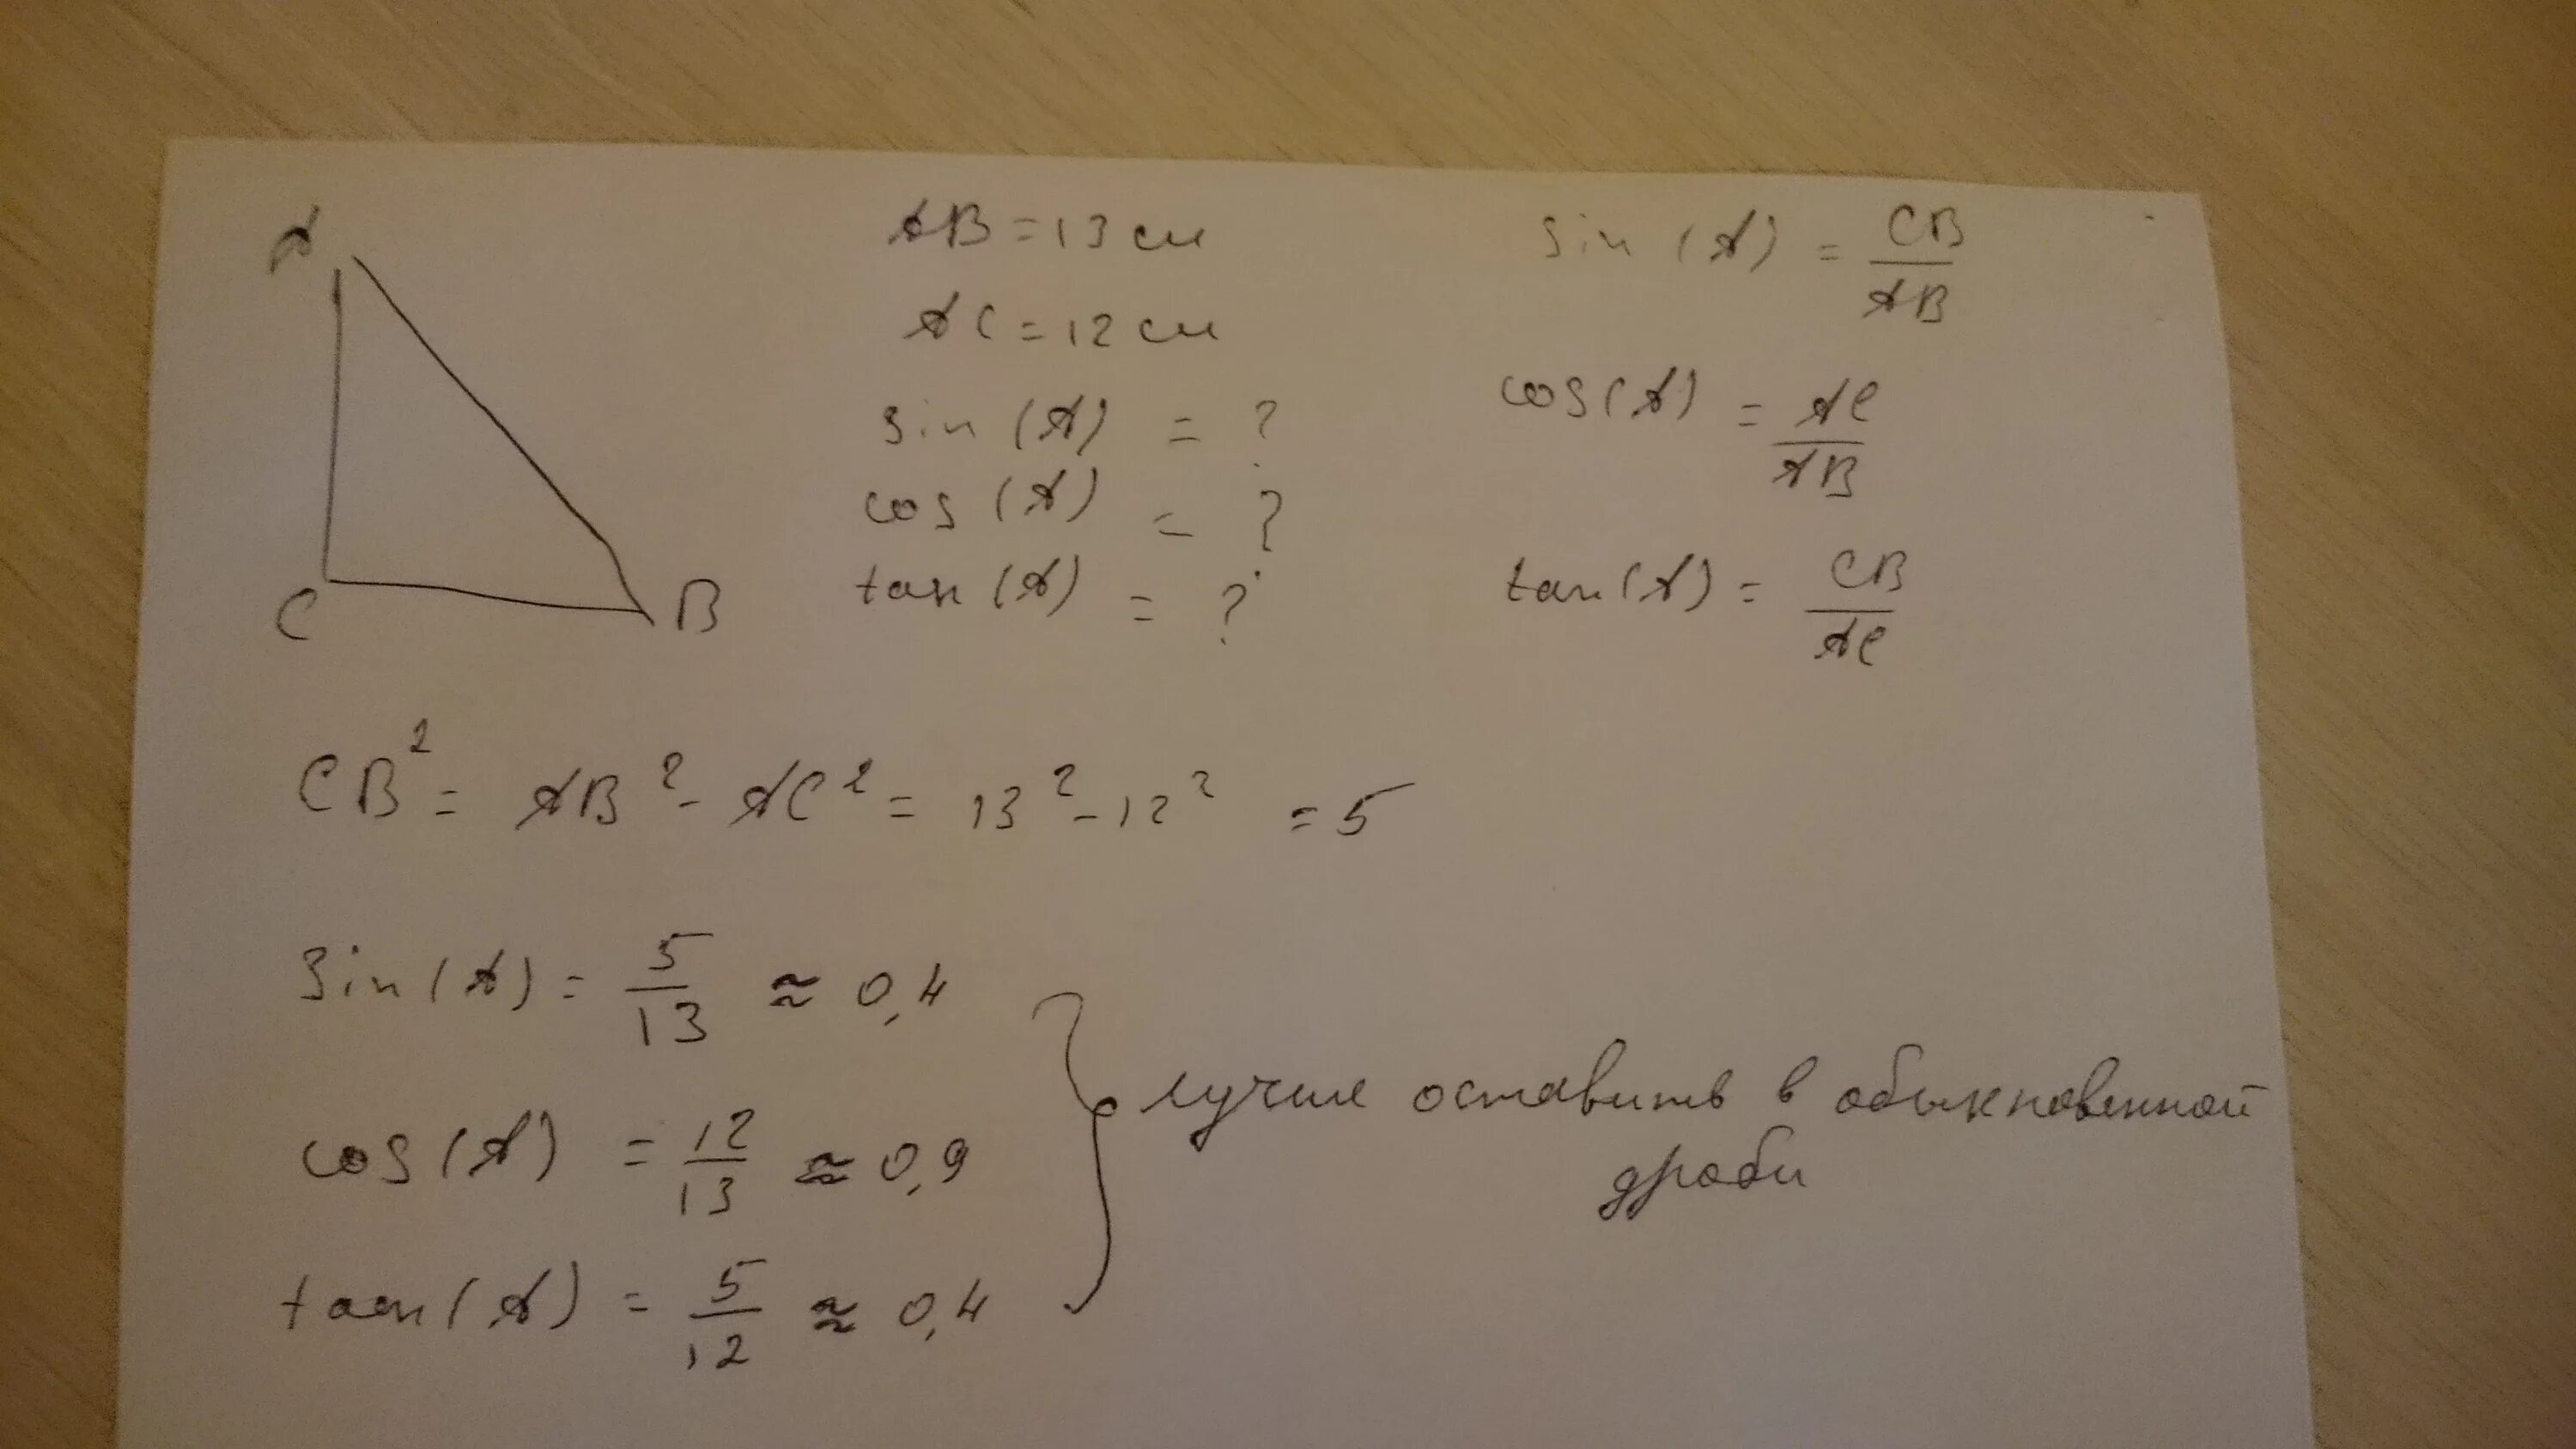 A
C
B
AB = 13 см
AC = 12 см
sin (A) = ?
cos (A) = ?
tan (A) = ?
sin (A) = CB / AB
cos (A) = AC / AB
tan (A) = CB / AC
CB² = AB² - AC² = 13² - 12² = 5
sin (A) = 5/13 ≈ 0,4
cos (A) = 12/13 ≈ 0,9
tan (A) = 5/12 ≈ 0,4
лучше оставить в обыкновенной
дроби